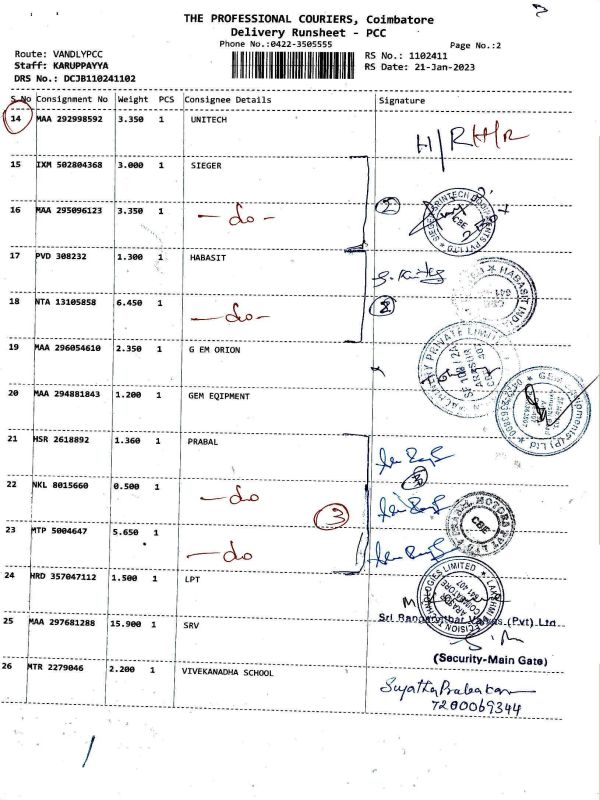 THE PROFESSIONAL COURIERS, Coimbatore
Delivery Runsheet - PCC
Phone No.:0422-3505555
Page No.:2
Route: VANDLYPCC
Staff: KARUPPAYYA
DRS No.: DCJB110241102
RS No.: 1102411
RS Date: 21-Jan-2023
S No Consignment No Weight PCS Consignee Details Signature
14 MAA 292998592 3.350 1 UNITECH H/R H/R
15 IXM 502804368 3.000 1 SIEGER
16 MAA 295096123 3.350 1 -do- 2
17 PVD 308232 1.300 1 HABASIT
18 NTA 13105858 6.450 1 -do- 2
19 MAA 296054610 2.350 1 G EM ORION
20 MAA 294881843 1.200 1 GEM EQIPMENT
21 HSR 2618892 1.360 1 PRABAL
22 NKL 8015660 0.500 1 -do
3
23 MTP 5004647 5.650 1 -do
24 HRD 357047112 1.500 1 LPT
25 MAA 297681288 15.900 1 SRV
(Security-Main Gate)
26 MTR 2279046 2.200 1 VIVEKANADHA SCHOOL
Sujatha Prabakaran
7200069344